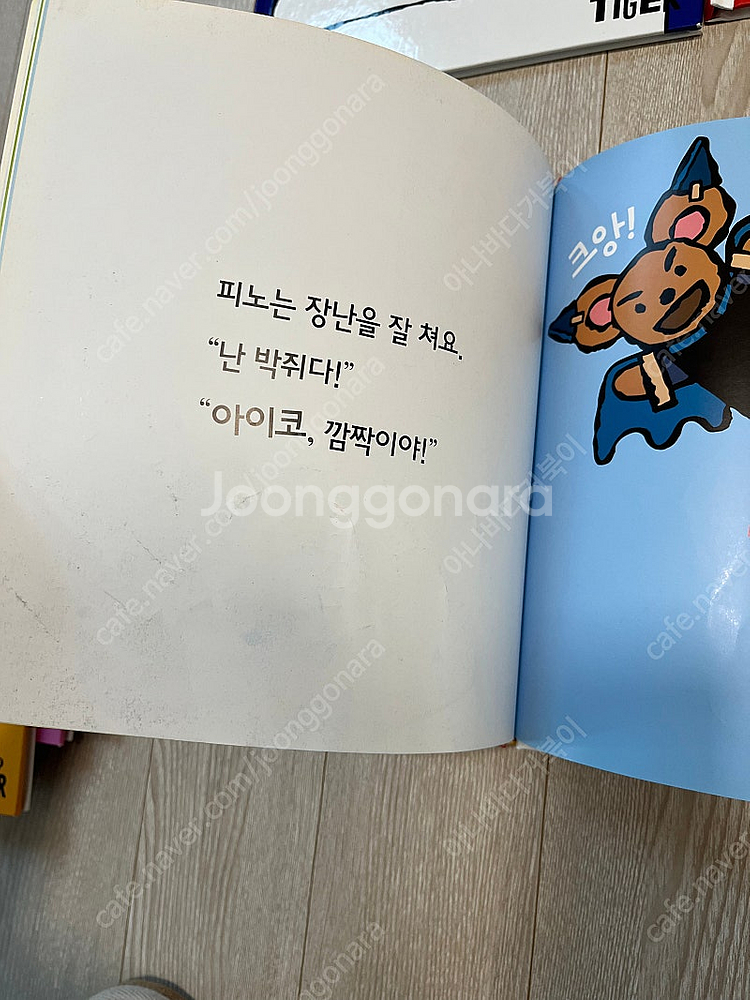 TIGER
크앙!
피노는 장난을 잘 쳐요.
“난 박쥐다!”
“아이코, 깜짝이야!”
Joonggonara
cafe.naver.com/joonggonara
아나바다거북이